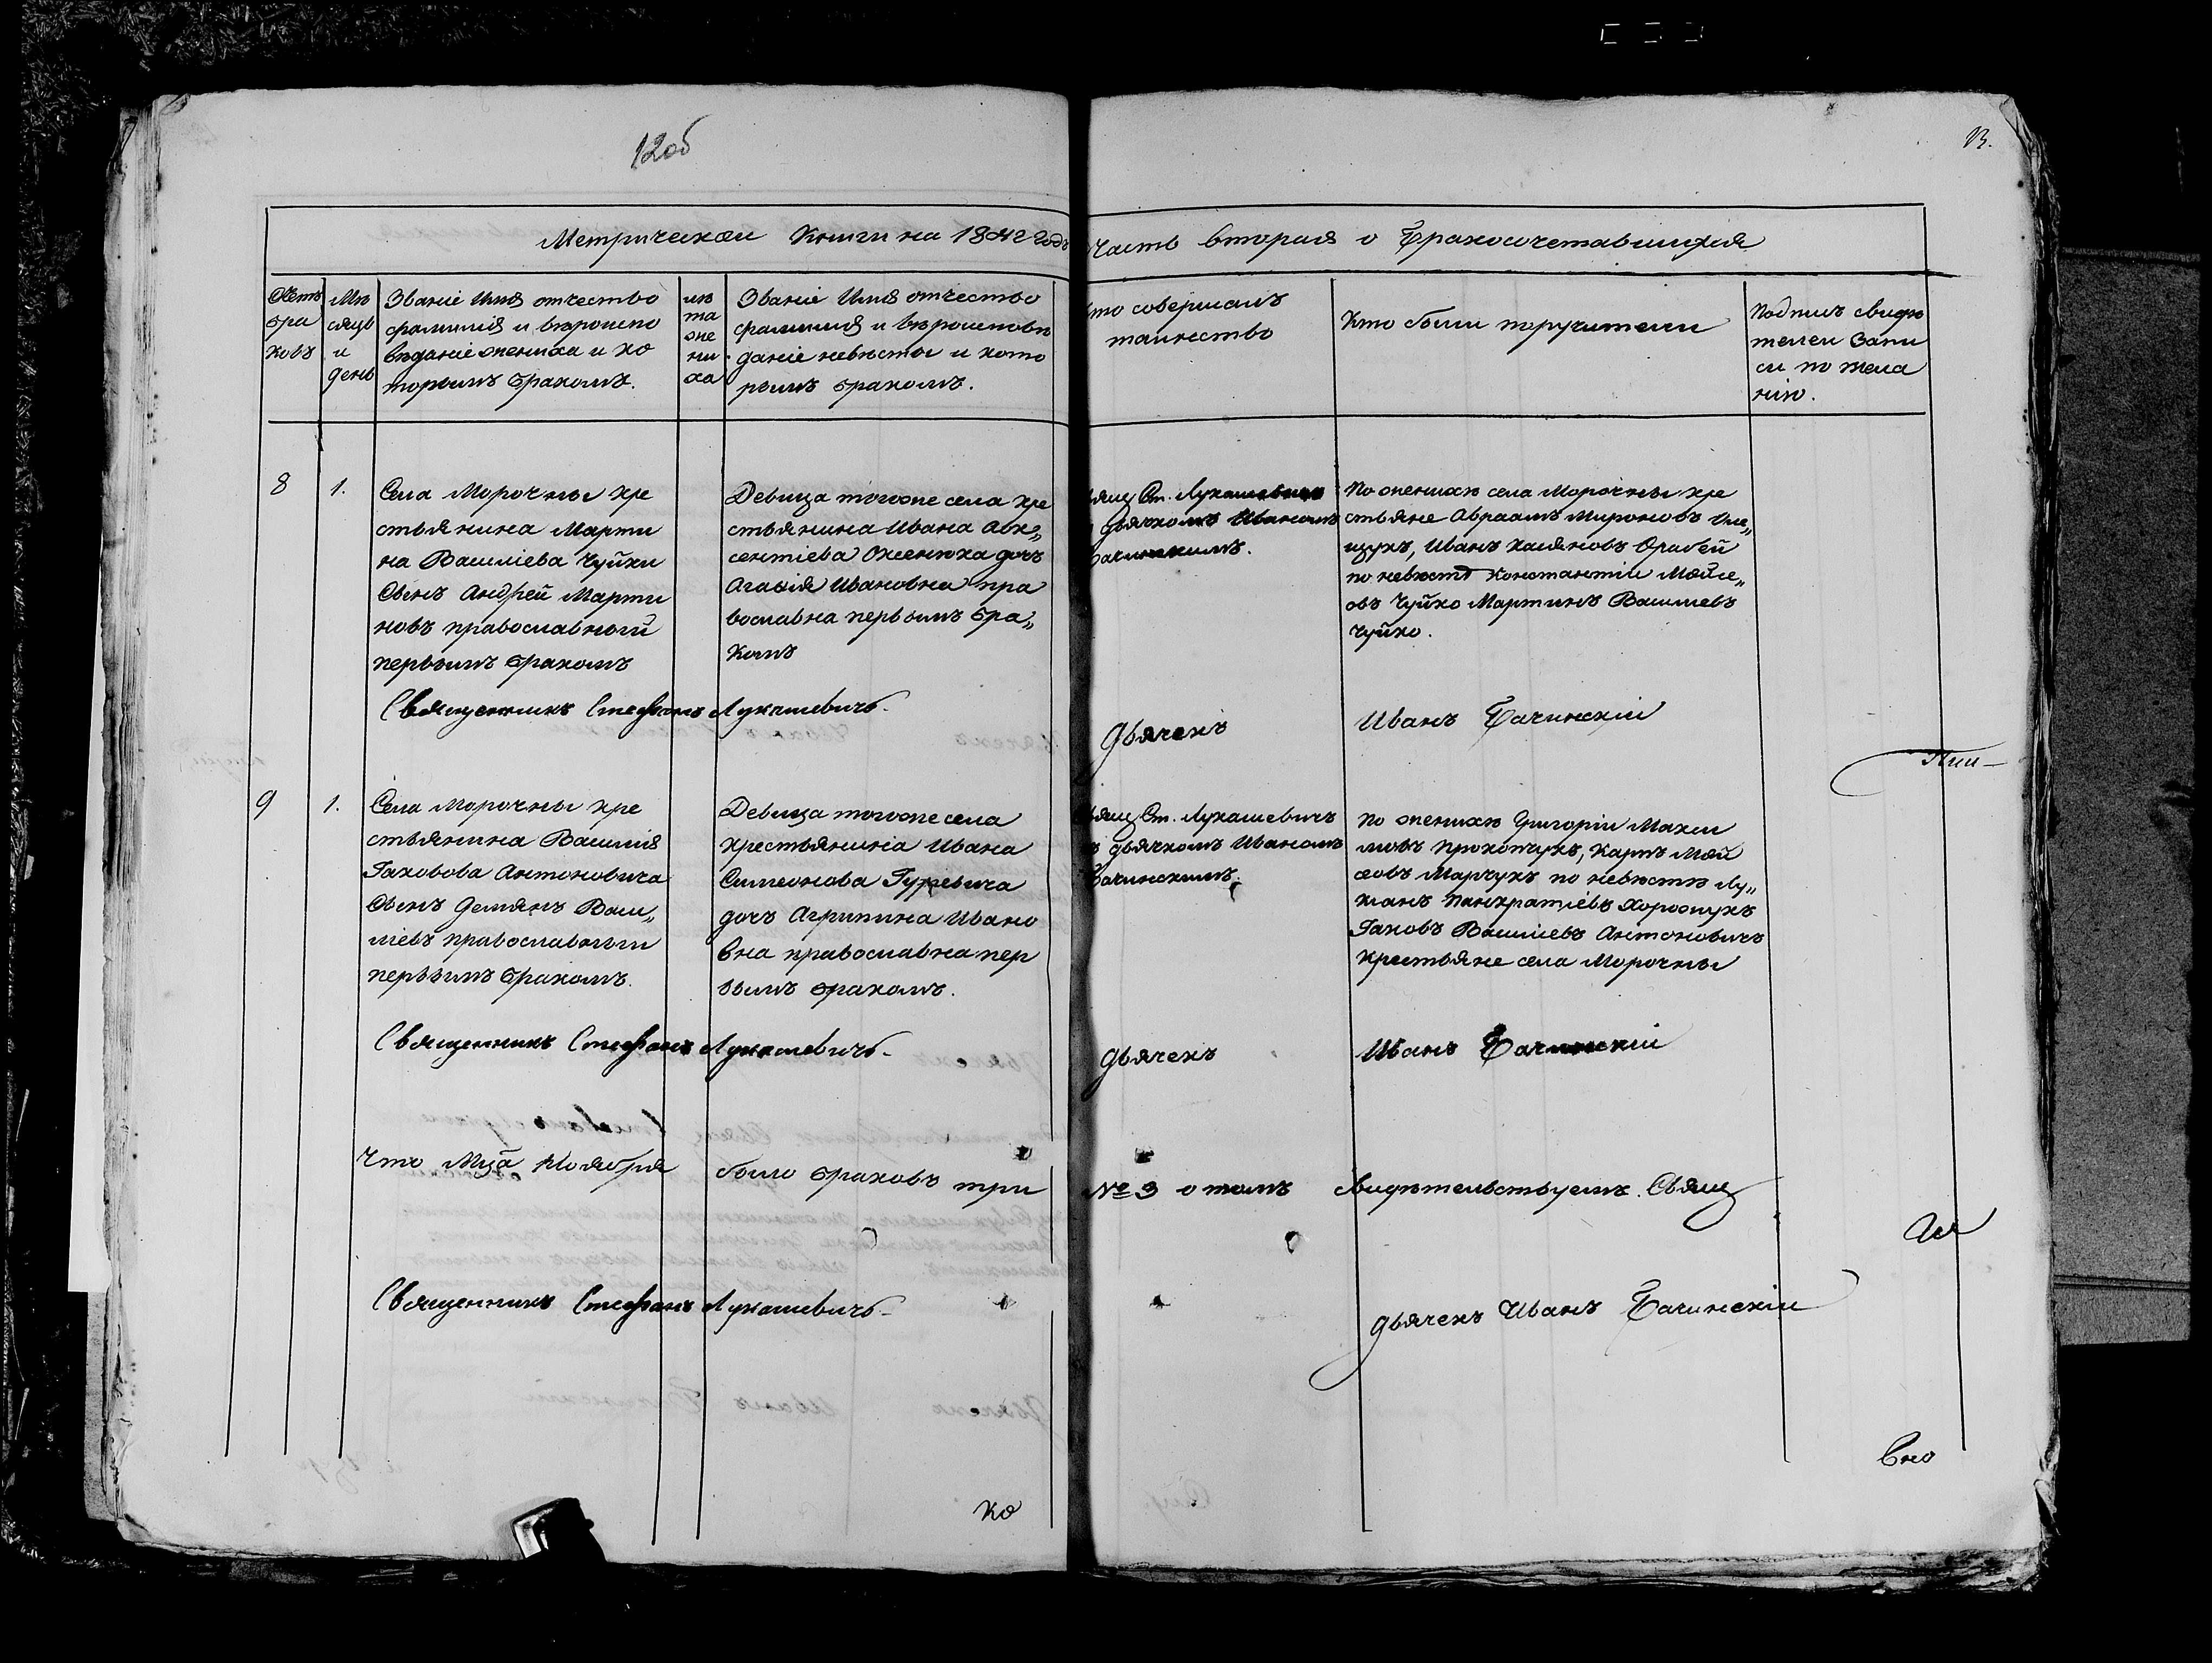 12об
13.
Метрической Книги на 1842 годъ
Часть вторая о Бракосочетавшихся
Счетъ
бра
ковъ
Мѣ
сяцъ
и
день
Званіе Имя отчество
фамилія и вѣроиспо
вѣданіе жениха и ко
торымъ бракомъ.
лѣ
та
же
ни
ха
Званіе Имя отчество
фамилія и вѣроисповѣ
даніе невѣсты и кото
рымъ бракомъ.
Кто совершалъ
таинство
Кто были поручители
Подпись свидѣ
телей Запи
си по жела
нію.
8
1.
Села Морочны кре
стьянина Марти
на Василіева Чуйки
Сынъ Андрей Марти
новъ православный
первымъ бракомъ
Девица тогоже села кре
стьянина Ивана Авк„
сентіева дочь
Агафія Ивановна пра
вославна первымъ бра„
комъ
Ст. Лукашевичъ
дьячкомъ Иваномъ
Бачинскимъ.
По женихѣ села Морочны кре
стьяне Авраамъ Мироновъ
Иванъ
по невѣстѣ Константій Мойсе„
овъ Чуйко Мартинъ Василіевъ
Чуйко.
Священникъ Стефанъ Лукашевичъ.
Дьячекъ
Иванъ Бачинскій
9
1.
Села Морочны кре
стьянина Василія
Іаковова Антоновича
Сынъ Демянъ Васи„
ліевъ православный
первымъ бракомъ.
Девица тогоже села
крестьянина Ивана
Симеонова
дочь Агрипина Ивано
вна православна пер
вымъ бракомъ.
Ст. Лукашевичъ
дьячкомъ Иваномъ
Бачинскимъ.
По женихѣ Григорій Макси
мовъ Прокопчукъ, Карпъ Мой
сеовъ Марчукъ по невѣстѣ Лу„
кіанъ Панкратіевъ
Іаковъ Василіевъ Антоновичъ
крестьяне села Морочны
Священникъ Стефанъ Лукашевичъ.
Дьячекъ
Иванъ Бачинскій
Что Мца Ноября было браковъ три
№ 3 о томъ свидѣтельствуемъ. Свящ
Священникъ Стефанъ Лукашевичъ.
Дьячекъ Иванъ Бачинскій
ко